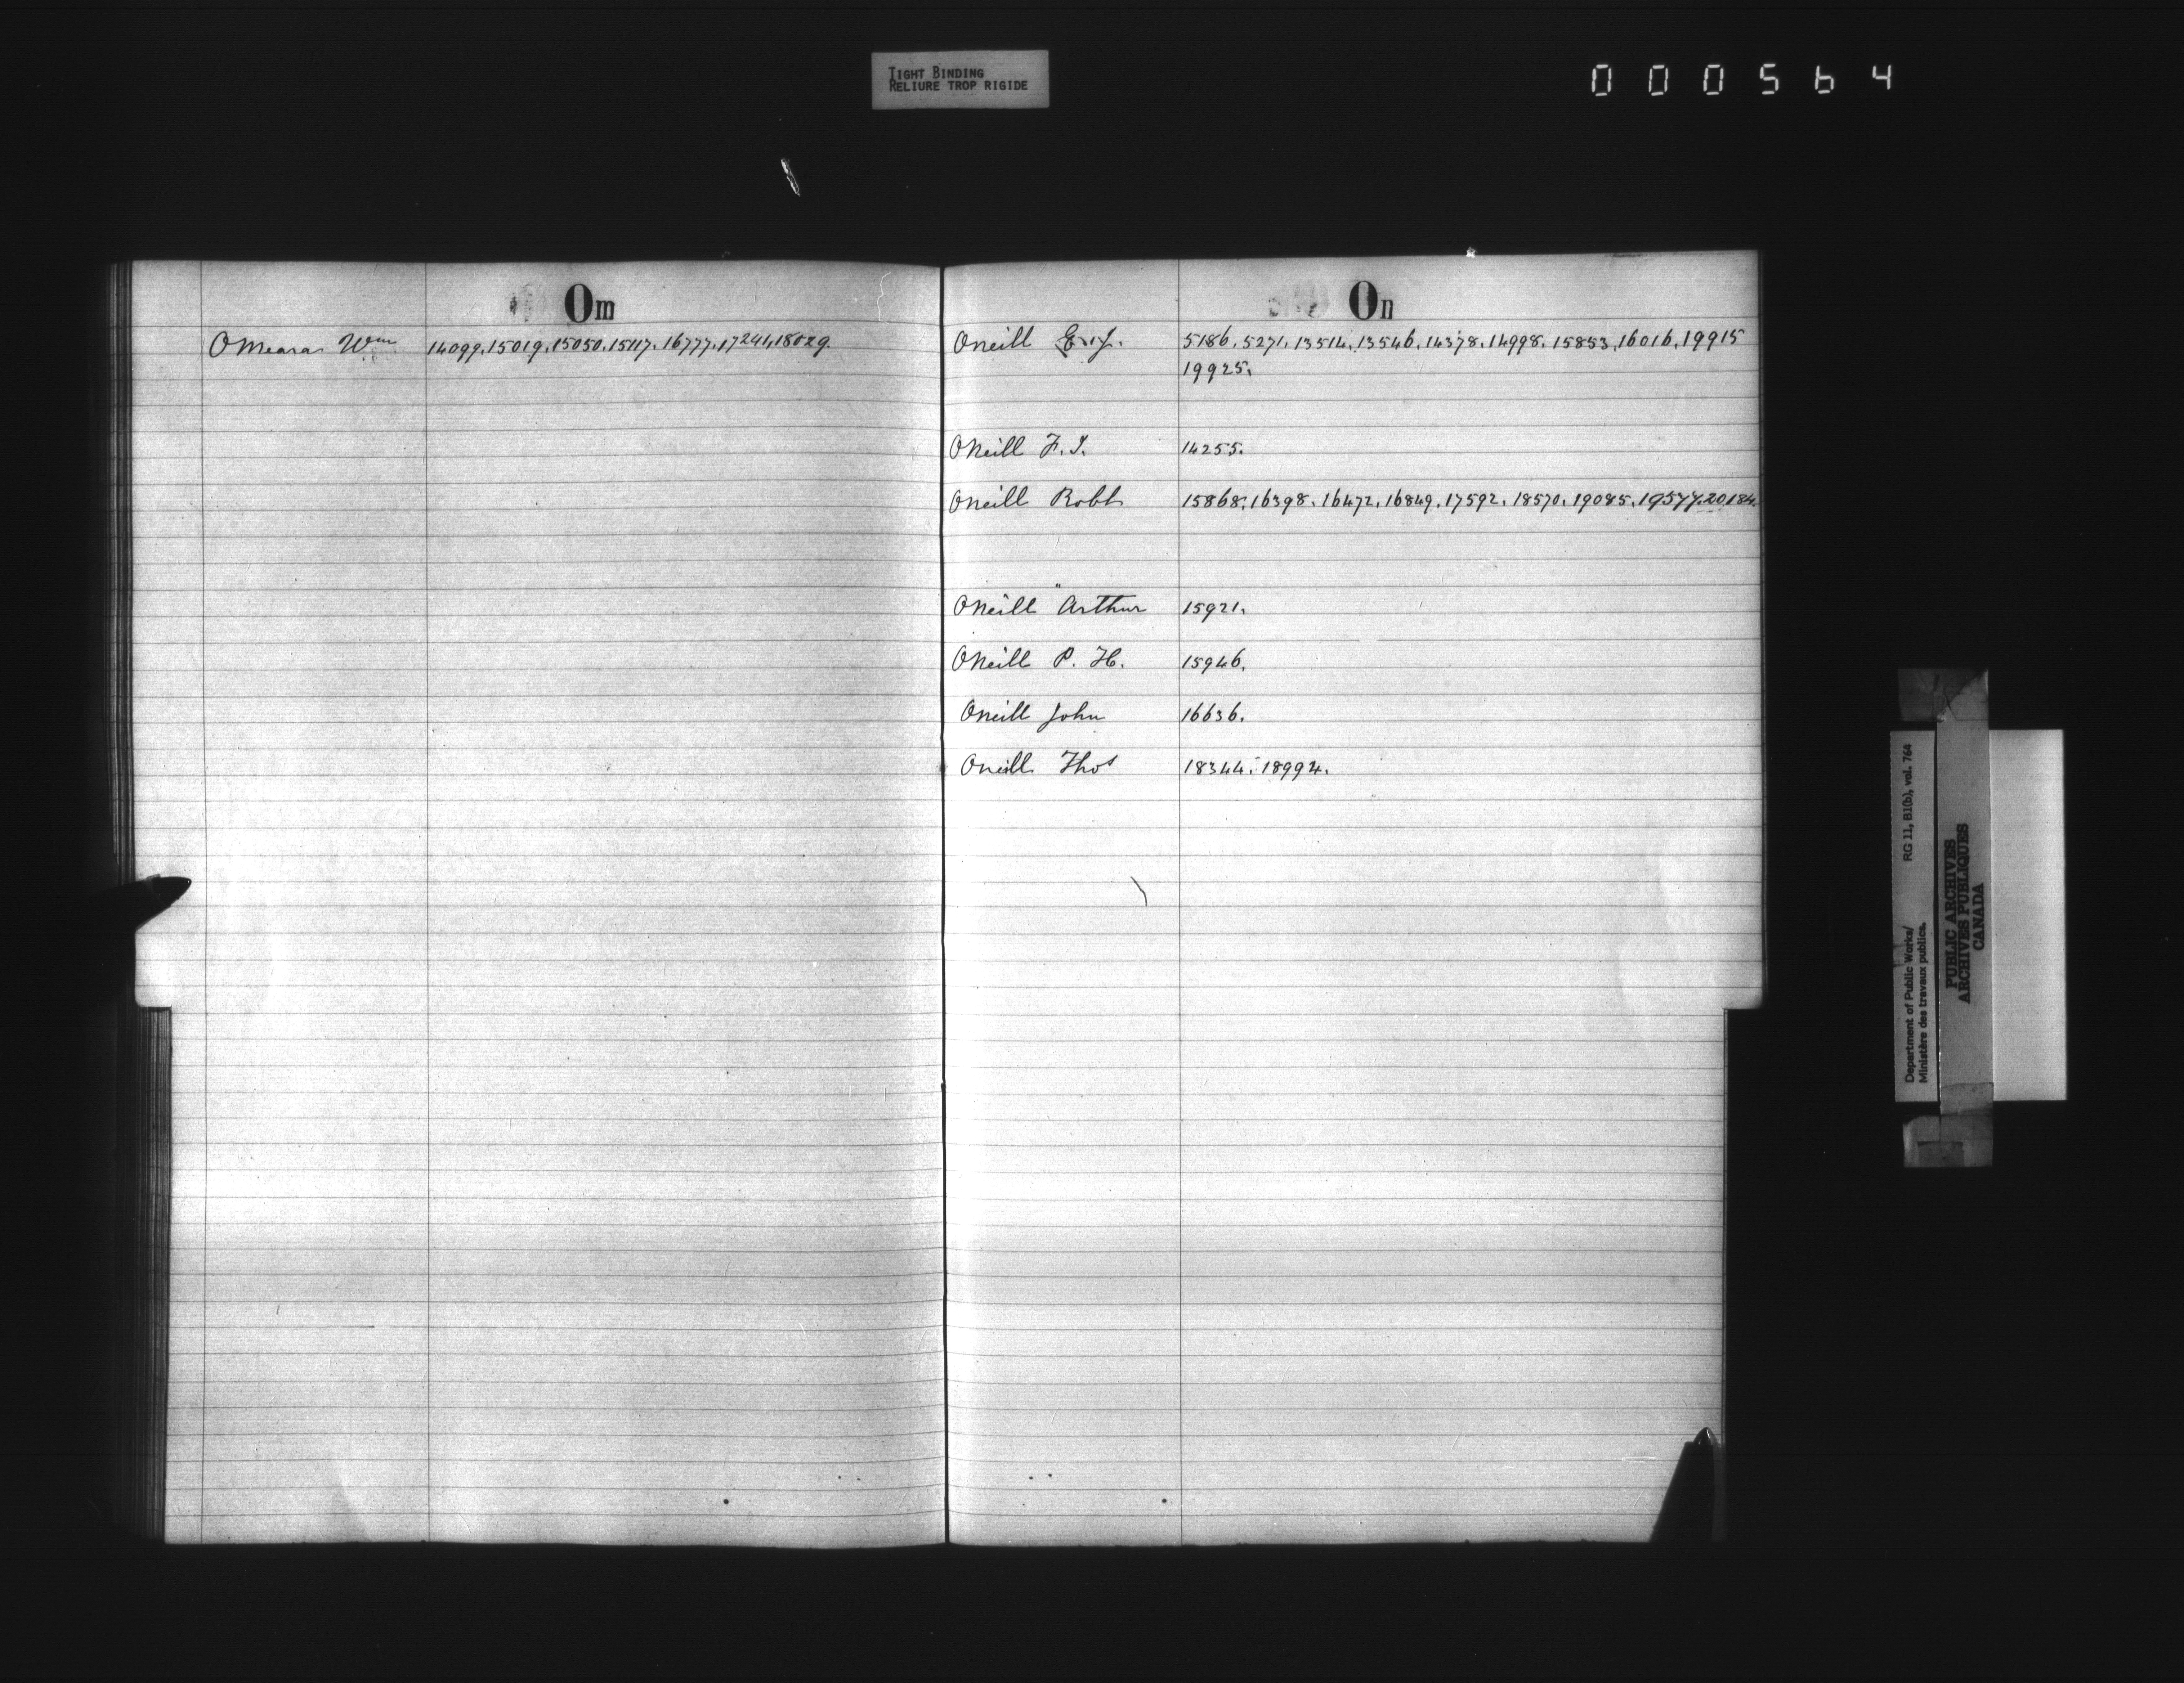 TIGHT BINDING
RELIURE TROP RIGIDE
000564
Om
OMeara Wm 14099. 15019. 15050. 15117. 16777. 17241. 18029.
On
Oneill 5186. 5271. 13514. 13546. 14378. 14998. 15853. 16016. 19915
19925.
ONeill F. J. 14255.
Oneill Robt 15868. 16398. 16472. 16849. 17592. 18570. 19085. 19577. 20184.
ONeill Arthur 15921.
ONeill P. H. 15946.
Oneill John 16636.
Oneill Thos 18344. 18994.
Department of Public Works/ RG 11, B1(b), vol. 764
Ministère des travaux publics.
PUBLIC ARCHIVES
ARCHIVES PUBLIQUES
CANADA